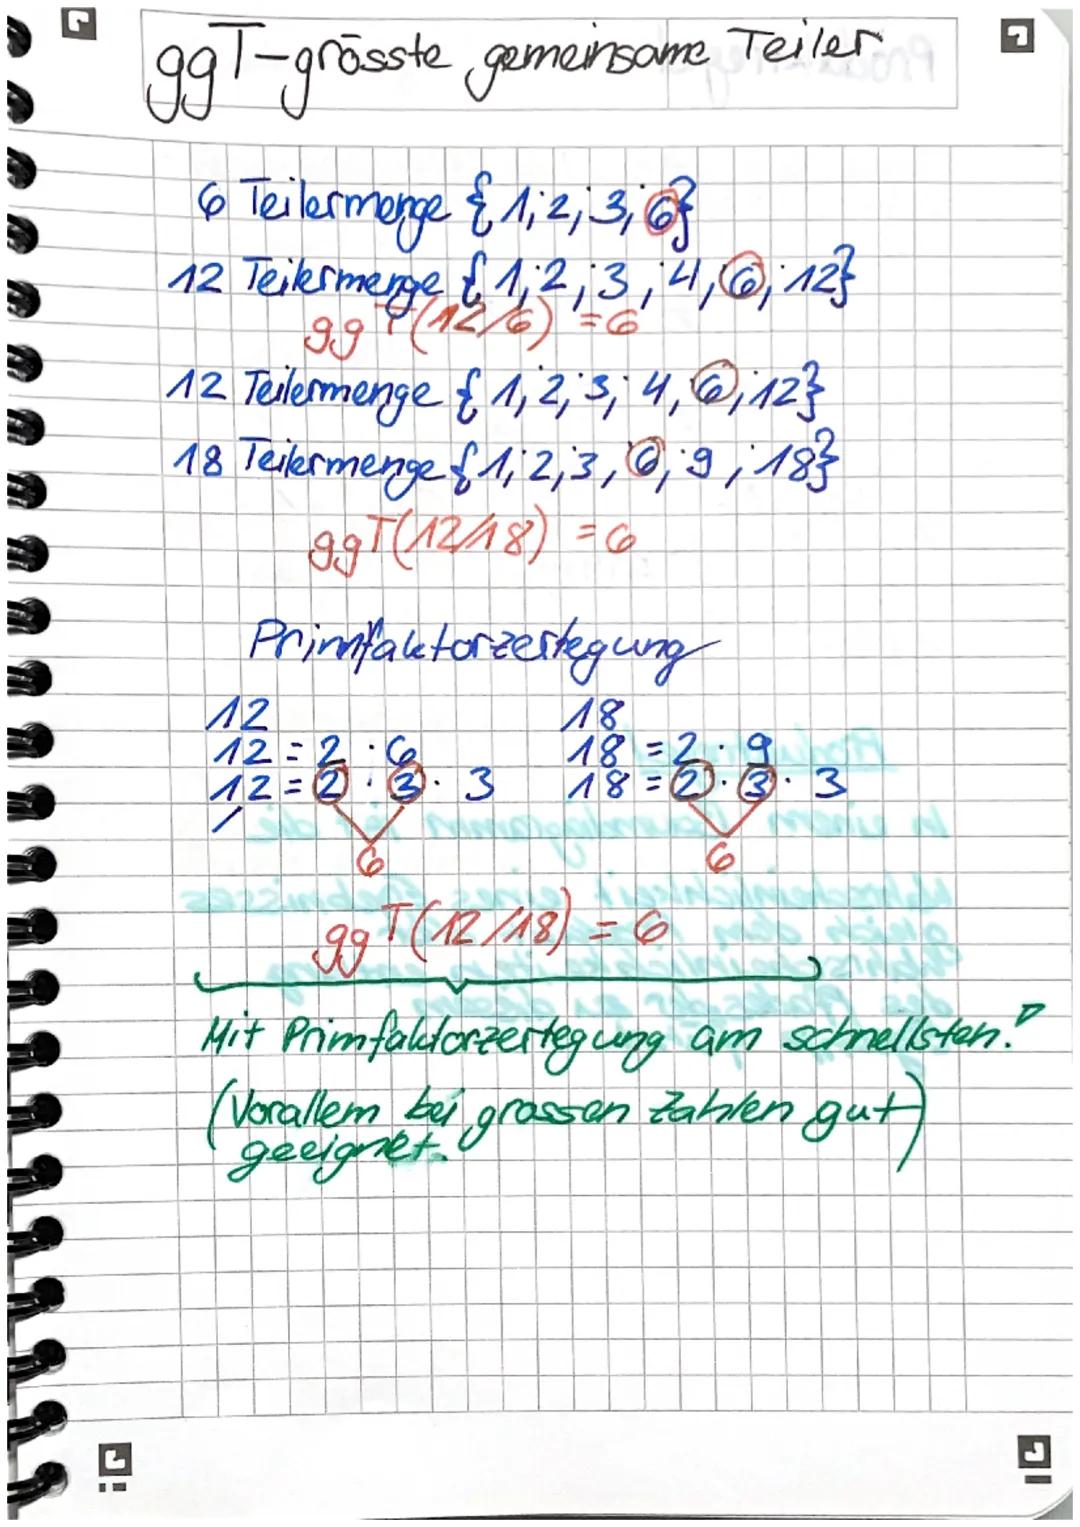 ggT-grösste gemeinsame Teiler
6 Teilermenge {1; 2; 3; 6}
12 Teilermenge {1; 2; 3; 4; 6; 12}
ggT(12/6) = 6
12 Teilermenge {1; 2; 3; 4; 6; 12}
18 Teilermenge {1; 2; 3; 6; 9; 18}
ggT(12/18) = 6
Primfaktorzerlegung
12 18
12 = 2 · 6 18 = 2 · 9
12 = 2 · 3 · 3 18 = 2 · 3 · 3
6 6
ggT(12/18) = 6
Mit Primfaktorzerlegung am schnellsten!
(Vorallem bei grossen Zahlen gut
geeignet.)